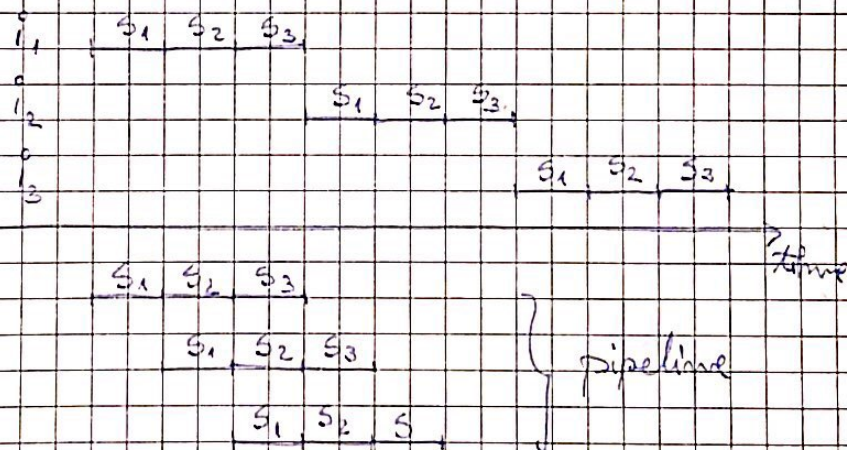 i₁ S₁ S₂ S₃
i₂ S₁ S₂ S₃
i₃ S₁ S₂ S₃
time
S₁ S₂ S₃
S₁ S₂ S₃
pipeline
S₁ S₂ S